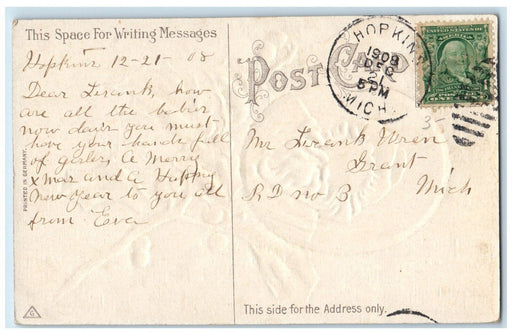 This Space For Writing Messages
Hopkins 12-21-08
Dear Frank, how
are all the babies
now days you must
have your hands full
of galers A Merry
Xmas and A Happy
New year to you all
from Eva
PRINTED IN GERMANY.
G
POST CARD
HOPKINS
1908
DEC
2
5 PM
MICH.
1
3-
Mr Frank Wren
Grant
R D no 3 Mich
This side for the Address only.